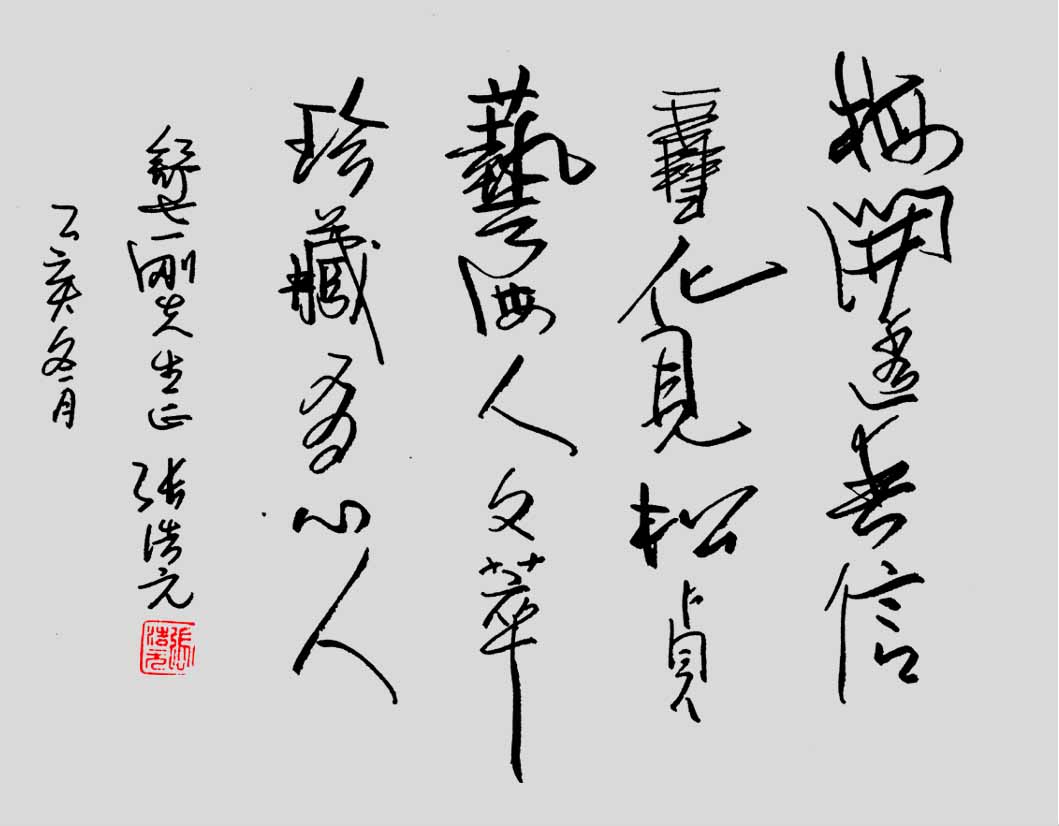 梅開透春信
雪化見松貞
藝海人文萃
珍藏有心人
舒 刚先生正 張浩元
乙亥冬月
張浩元